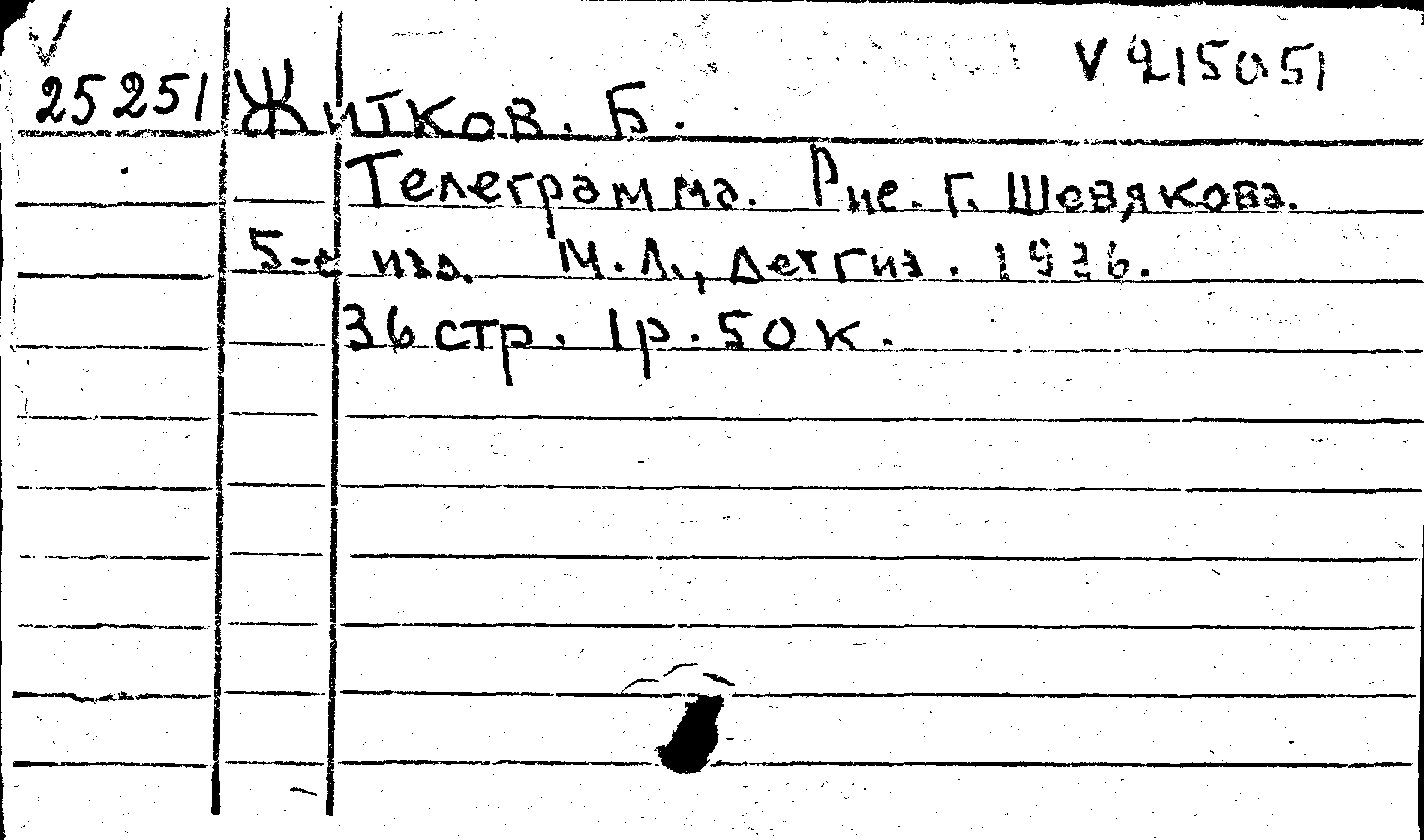 V 215051
V
25251 Житков. Б.
Телеграмма. Рис. Г. Шевякова.
5-е изд. М.Л., Детгиз. 1936.
36 стр. 1р. 50 к.